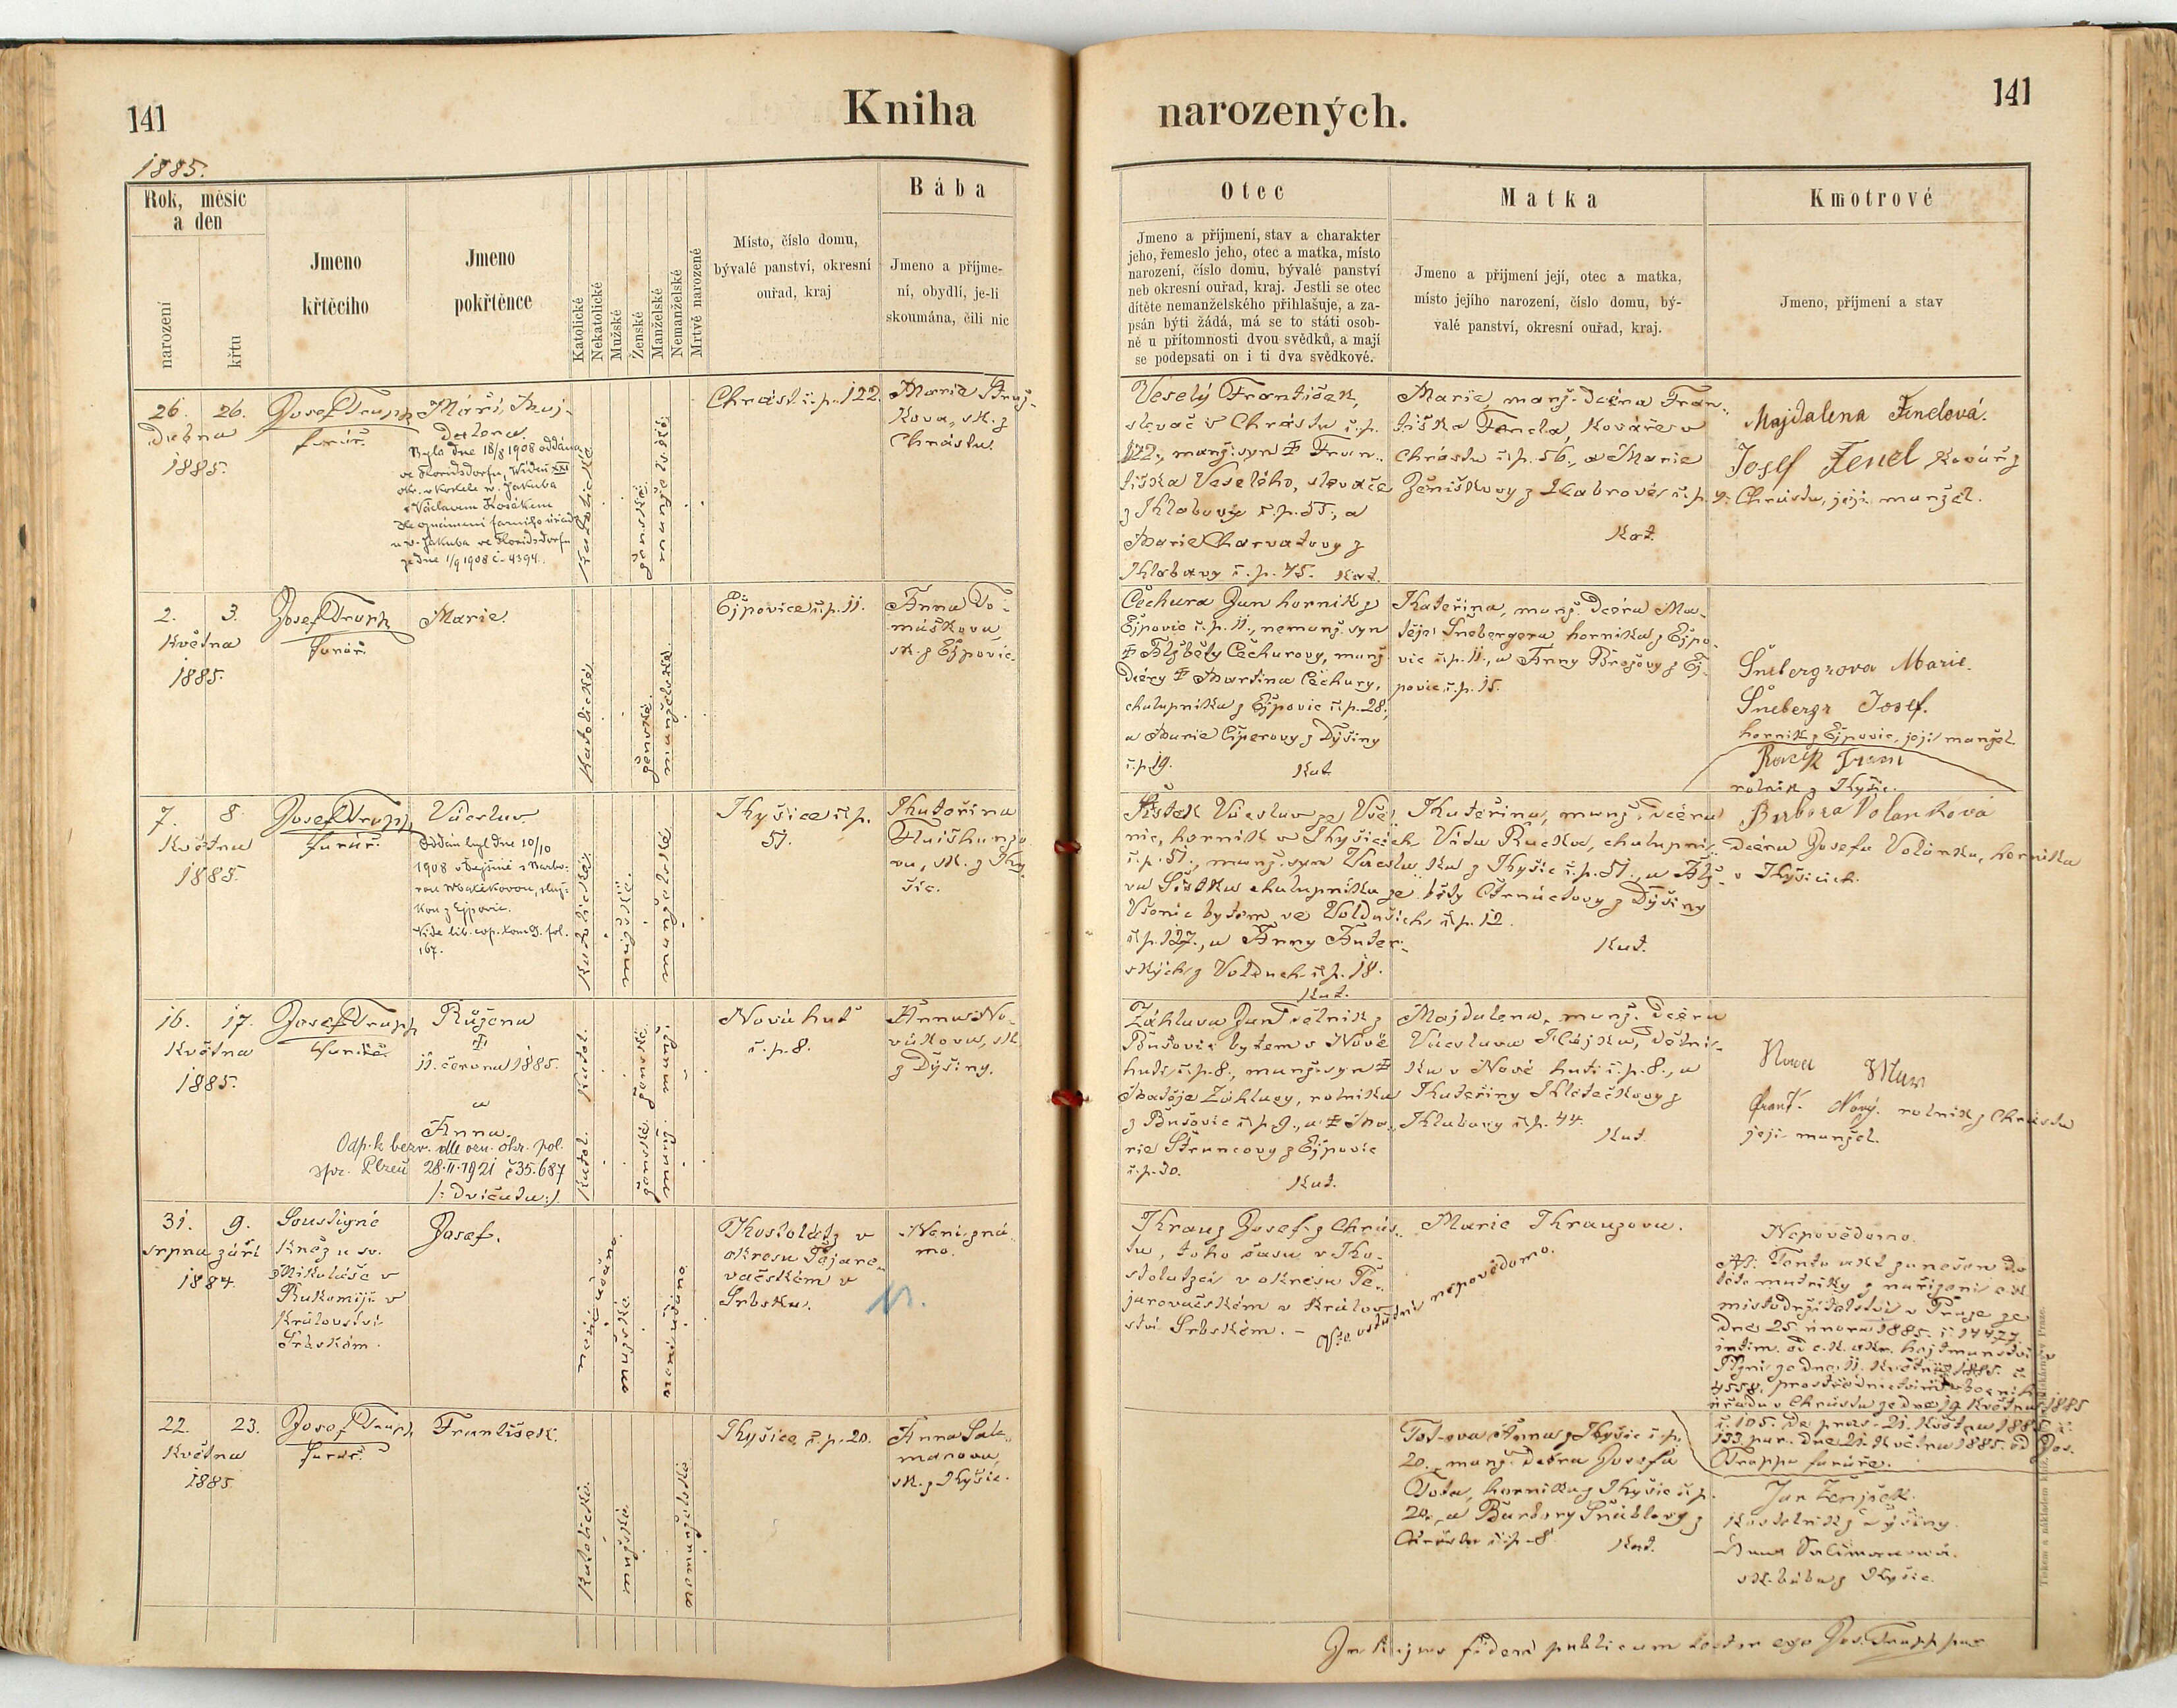 141
Kniha
narozených.
141
1885.
Rok, měsíc
a den
narození
křtu
Jmeno
křtěcího
Jmeno
pokřtěnce
Katolické
Nekatolické
Mužské
Ženské
Manželské
Nemanželské
Mrtvě narozené
Místo, číslo domu,
bývalé panství, okresní
ouřad, kraj
Bába
Jmeno a příjme-
ní, obydlí, je-li
skoumána, čili nic
Otec
Jmeno a příjmení, stav a charakter
jeho, řemeslo jeho, otec a matka, místo
narození, číslo domu, bývalé panství
neb okresní ouřad, kraj. Jestli se otec
dítěte nemanželského přihlašuje, a za-
psán býti žádá, má se to státi osob-
ně u přítomnosti dvou svědků, a mají
se podepsati on i ti dva svědkové.
Matka
Jmeno a příjmení její, otec a matka,
místo jejího narození, číslo domu, bý-
valé panství, okresní ouřad, kraj.
Kmotrové
Jmeno, příjmení a stav
26. 26.
Dubna
1885.
Josef Trapp
farář.
Máří, Maj-
dalena.
Byla dne 18/8 1908 oddána
ve Floridsdorfu, Wídeň XXI
okr. v kostele sv. Jakuba
s Václavem Kosákem
dle oznámení farního úřadu
u sv. Jakuba ve Floridsdorfu
ze dne 1/9 1908 č. 4394.
Katolické
ženské
manželské
Chrást č. p. 122.
Marie
kova, zk. z
Chrástu.
Veselý František,
slevač v Chrástu č. p.
122., manž. syn ‡ Fran-
tiška Veselého, slevače
z Klabavy č. p. 55., a
Marie Charvatovy z
Klabavy č. p. 75. Kat.
Marie, manž. dcéra Fran-
tiška Fencla, kováře v
Chrástu č. p. 56., a Marie
č. p. 4.
Kat.
Majdalena Fenclová.
Josef Fencl kovář z
Chrástu, její manžel.
2. 3.
Května
1885.
Josef Trapp
farář.
Marie.
Katolické
ženské.
manželské
Ejpovice č. p. 11.
Anna To-
máškova,
zk. z Ejpovic.
Čechura Jan horník z
Ejpovic č. p. 11., nemanž. syn
‡ Alžběty Čechurovy, manž.
dcéry ‡ Martina Čechury,
chalupníka z Ejpovic č. p. 28.,
a Marie Ciperovy z Dýšiny
č. p. 19. Kat.
Kateřina, manž. dcéra Ma-
těje Šnebergera horníka z Ejpo-
vic č. p. 11., a Anny Brožovy z Ej-
povic, č. p. 15.
Šnebergrova Marie.
Šnebergr Josef.
horník z Ejpovic, její manžel.
rolník z Kyšic.
7. 8.
Května
1885.
Josef Trapp
farář.
Václav.
Oddán byl dne 10/10
1908 v Dejšině s Barbo-
rou Macákovou, služ-
kou z Ejpovic.
Vide lib. cop. tom 9. fol.
167.
Katolické
mužské.
manželské
Kyšice č. p.
51.
Kateřina
va, zk. z Ky-
šic.
Šístek Václav ze Vše-
nic, horník v Kyšicích
č. p. 51., manž. syn Václa-
va Šístka chalupníka ze
Všenic bytem ve Volduších
č. p. 127., a Anny
z Volduch č. p. 18.
Kat.
Kateřina, manž. dcéra
Víta Racka, chalupní-
ka z Kyšic č. p. 51., a Alž-
běty Čtrnáctovy z Dýšiny
č. p. 12.
Kat.
Barbora Volanková
dcéra Josefa Volánka, horníka
v Kyšicích.
16. 17.
Května
1885.
Josef Trapp
farář.
Růžena
‡
11. června 1885.
a
Anna.
Odp. k bezv. dle ozn. okr. pol.
spr. Plzeň 28. II. 1921 č 35.687
/: dvíčata :/
Katol.
ženské
manž.
Katol.
ženské
manž.
Nová huť
č. p. 8.
Anna No-
vákova, zk.
z Dýšiny.
Záhlava Jan dělník z
Bušovic bytem v Nové
huti č. p. 8., manž. syn ‡
Matěje Záhlavy, rolníka
z Bušovic č. p. 9., a ‡ Ma-
rie Štruncovy z Ejpovic
č. p. 30. Kat.
Majdalena, manž. dcéra
Václava Hájka, dělní-
ka v Nové huti č. p. 8., a
Kateřiny
Klabavy č. p. 44.
Kat.
Frant. Nový. rolník z Chrástu
její manžel.
31. 9.
srpna září
1884.
Soustigné
kněz u sv.
Mikuláše v
v
království
Srbském.
Josef.
není udáno
mužské.
není udáno
Kostolátz v
okresu Požare-
vačském v
Srbsku.
Není zná-
mo.
Kranz Josef z Chrás-
tu, toho času v Ko-
stolatzci v okresu Po-
žarevačském v králov-
ství Srbském. –
Marie Kranzova.
Vše ostatní nepovědomo.
Nepovědomo.
NB. Tento akt zanešen do
této matriky z nařízení c.k.
místodržitelství v Praze ze
dne 25. února 1885. č. 14477
intim. od c. k. okr. hejtmanství v
Plzni ze dne 11. května 1885. č.
4558. prostřednictvím obecního
úřadu v Chrástu ze dne 19. května 1885
č. 105. de praes. 21. května 1885 č.
133 par. dne 21. května 1885. od Jos.
Trappa faráře.
22. 23.
Května
1885.
Josef Trapp
farář.
František.
Katolické.
mužské.
nemanželské
Kyšice č. p. 20.
Anna Sale-
manova,
zk. z Kyšic.
Totova Anna z Kyšic č. p.
20., manž. dcéra Josefa
Tota, horníka z Kyšic č. p.
20., a Barbory z
Chrástu č. p. 8. Kat.
Jan
kostelník z Dýšiny.
Anna Salimanová.
zk. bába z Kyšic.
In hujus fidem publicam testor ego Jos. Trapp